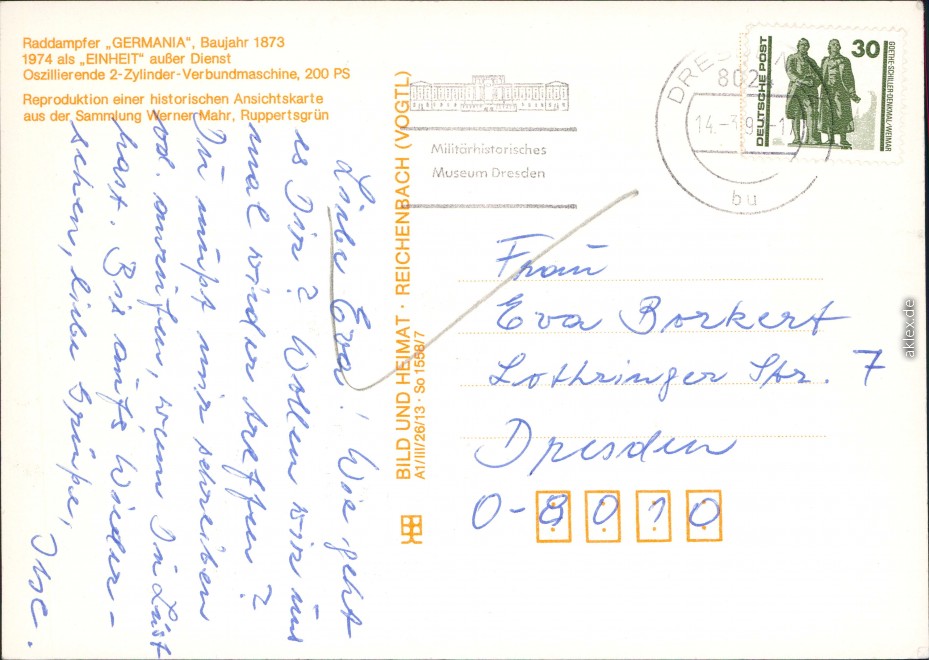 Raddampfer „GERMANIA“, Baujahr 1873
1974 als „EINHEIT“ außer Dienst
Oszillierende 2-Zylinder-Verbundmaschine, 200 PS
Reproduktion einer historischen Ansichtskarte
aus der Sammlung Werner Mahr, Ruppertsgrün
Liebe Eva! Wie geht
es Dir? Wollen wir uns
mal wieder treffen?
Du mußt mir schreiben
od. anrufen, wenn Du Lust
hast. Bis aufs Wieder-
sehen, liebe Grüße,
Ilse.
BILD UND HEIMAT · REICHENBACH (VOGTL)
A1/III/26/13 · So 1558/7
Militärhistorisches
Museum Dresden
DRES
802
14.-3.9
bu
DEUTSCHE POST
30
GOETHE-SCHILLER-DENKMAL/WEIMAR
Frau
Eva Borkert
Lothringer Str. 7
Dresden
O-8010
aklex.de